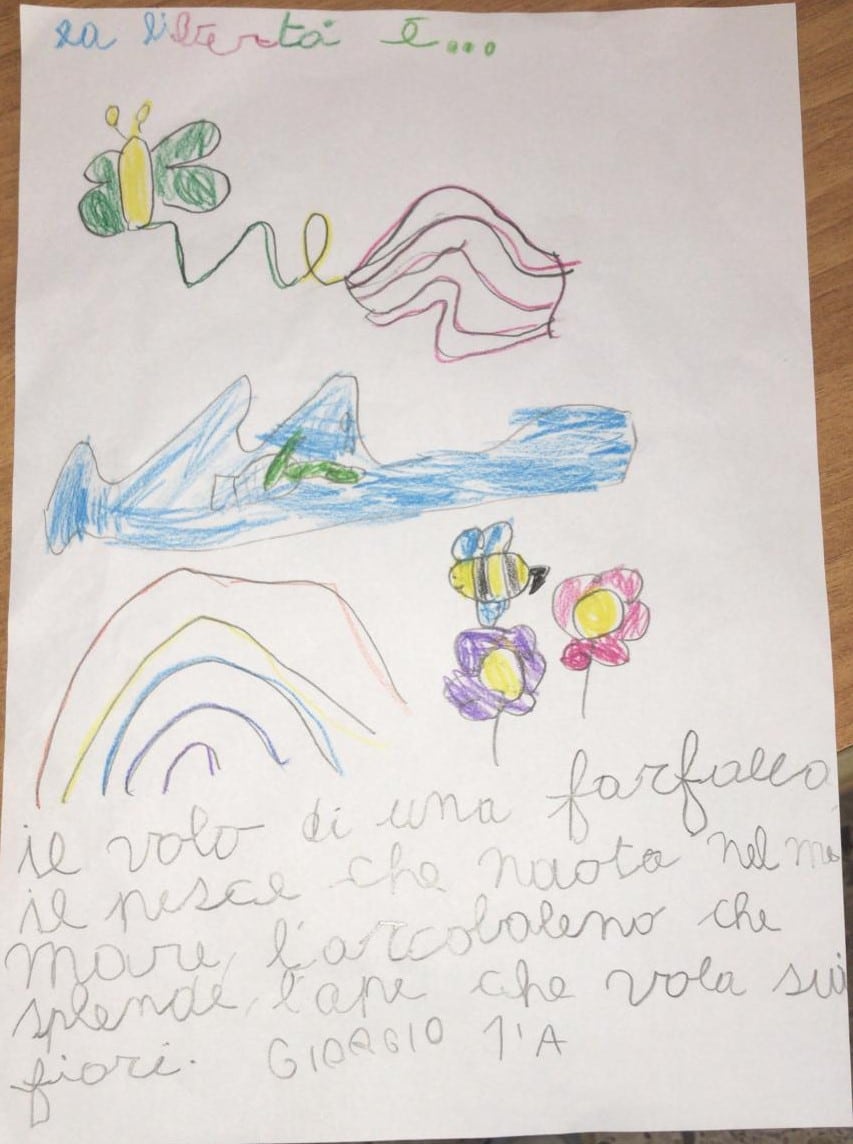 La libertà è...
il volo di una farfalla,
il pesce che nuota nel ma
mare, l'arcobaleno che
splende, l'ape che vola sui
fiori. GIORGIO 1ªA